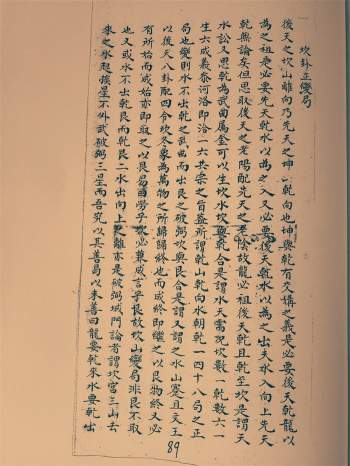 坎卦正變局
後天之坎山離向乃先天之坤 乾向也坤與乾有交媾之義是必要後天乾龍以
為之祖兼必要先天乾水以為之入又必要後天乾水以為之出夫水入向上先天
乾無論矣但思取後天之老陽配先天之老陰故龍必祖後天乾且乾至坎是謂天
水訟又思乾為武曲屬金可以生坎水坎與乾合是謂水天需況坎數一乾數六一
生六成義黍河洛即洽一六共宗之旨蓋所謂乾山乾向水朝乾一四十八局之正
局也變則水不出乾之武曲而出艮之破弼坎與艮合是謂又謂之水山蹇且文王
以後天八卦配四令坎冬象為萬物之所歸歸終也而成終即繼之以艮物終又必
有所始而成始亦即取之以艮 勞乎坎必兼成言乎艮故坎山變局非艮不取
也又或水不出乾艮而乾艮二水出向上之離亦是破弼城門論者謂坎宮三山去
來之水起換星不外武破弼三星而吾究以其善曷以來善曰龍要乾來水要乾出
89